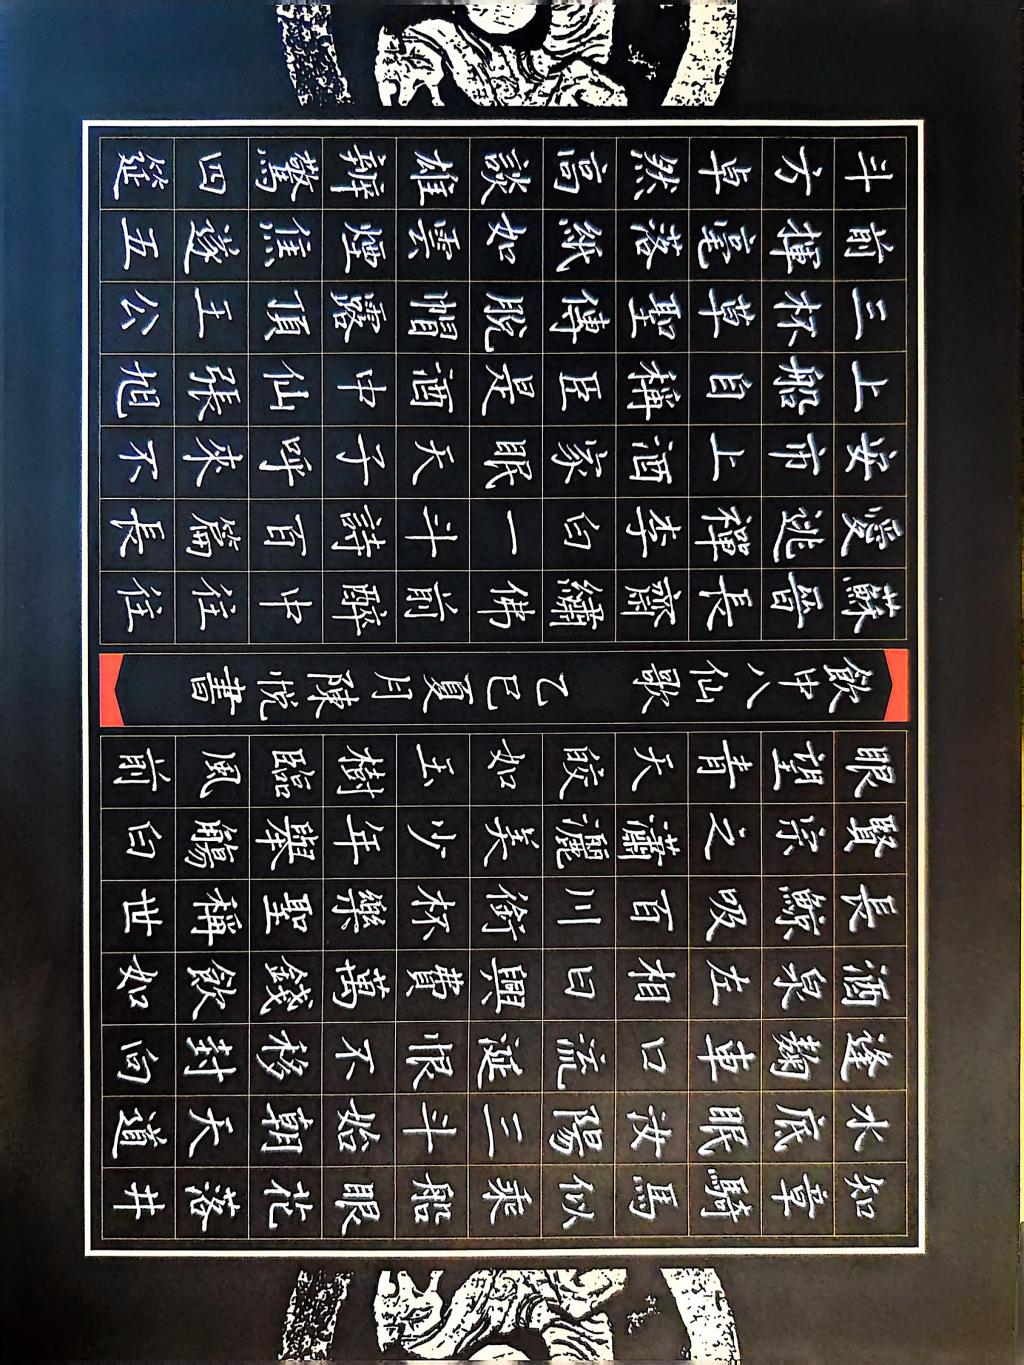 知章騎馬似乘船眼花落井
水底眠汝陽三斗始朝天道
逢麴車口流涎恨不移封向
酒泉左相日興費萬錢飲如
長鯨吸百川銜杯樂聖稱世
賢宗之瀟灑美少年舉觴白
眼望青天皎如玉樹臨風前
飲中八仙歌 乙巳夏月陳悅書
蘇晉長齋繡佛前醉中往往
愛逃禪李白一斗詩百篇長
安市上酒家眠天子呼來不
上船自稱臣是酒中仙張旭
三杯草聖傳脫帽露頂王公
前揮毫落紙如雲煙焦遂五
斗方卓然高談雄辨驚四筵